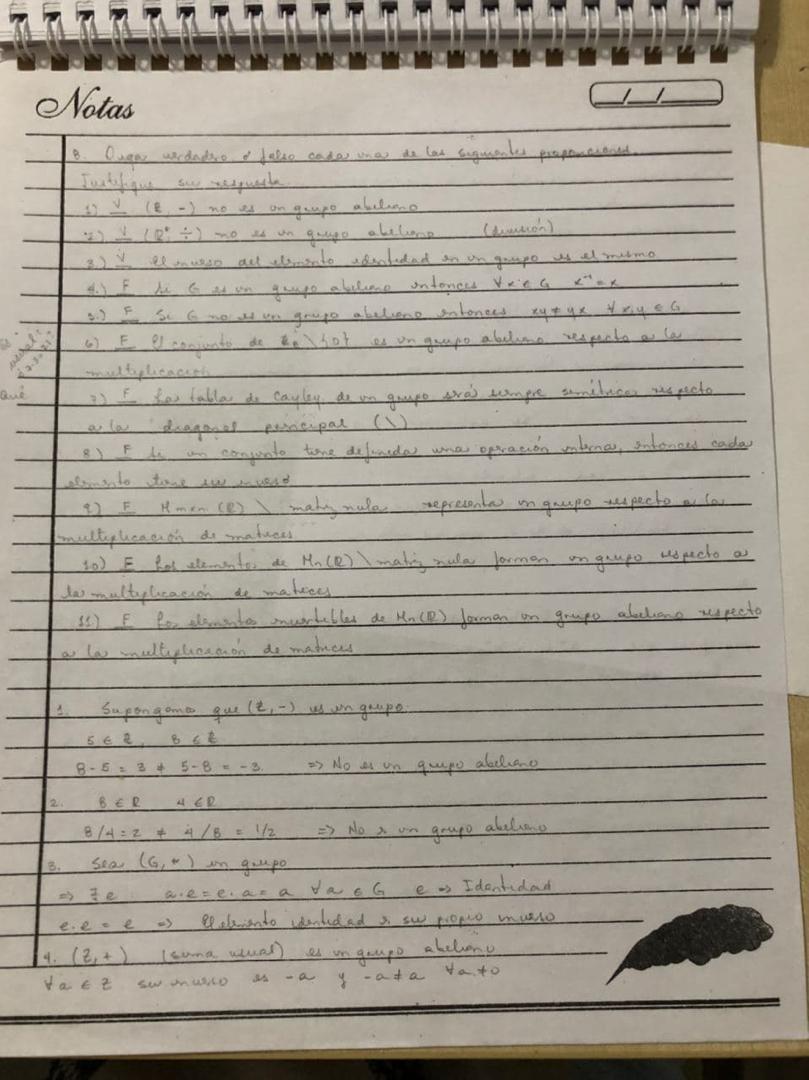 Notas
/ /
8. Diga verdadero o falso cada una de las siguientes proposiciones.
Justifique su respuesta.
1) V (Z, -) no es un grupo abeliano
2) V (R*, ÷) no es un grupo abeliano (división)
3) V El inverso del elemento identidad en un grupo es el mismo
4.) F Si G es un grupo abeliano entonces ∀x ∈ G x⁻¹ = x
5.) F Si G no es un grupo abeliano entonces xy ≠ yx ∀x,y ∈ G
6) F El conjunto de \ {0} es un grupo abeliano respecto a la
multiplicación
Qué
7) F La tabla de Cayley de un grupo será siempre simétrica respecto
a la diagonal principal (\)
8) F Si un conjunto tiene definida una operación interna, entonces cada
elemento tiene su inverso
9) F Mmxn (R) \ matriz nula representa un grupo respecto a la
multiplicación de matrices
10) F Los elementos de Mn(R) \ matriz nula forman un grupo respecto a
la multiplicación de matrices
11) F Los elementos invertibles de Mn(R) forman un grupo abeliano respecto
a la multiplicación de matrices
1. Supongamos que (Z, -) es un grupo.
5 ∈ Z, 8 ∈ Z
8-5 = 3 ≠ 5-8 = -3. => No es un grupo abeliano
2. 8 ∈ R 4 ∈ R
8/4 = 2 ≠ 4/8 = 1/2 => No es un grupo abeliano
3. Sea (G, *) un grupo
=> ∃ e a.e = e.a = a ∀a ∈ G e => Identidad
e.e = e => El elemento identidad es su propio inverso
4. (Z, +) (suma usual) es un grupo abeliano
∀a ∈ Z su inverso es -a y -a ≠ a ∀a ≠ 0